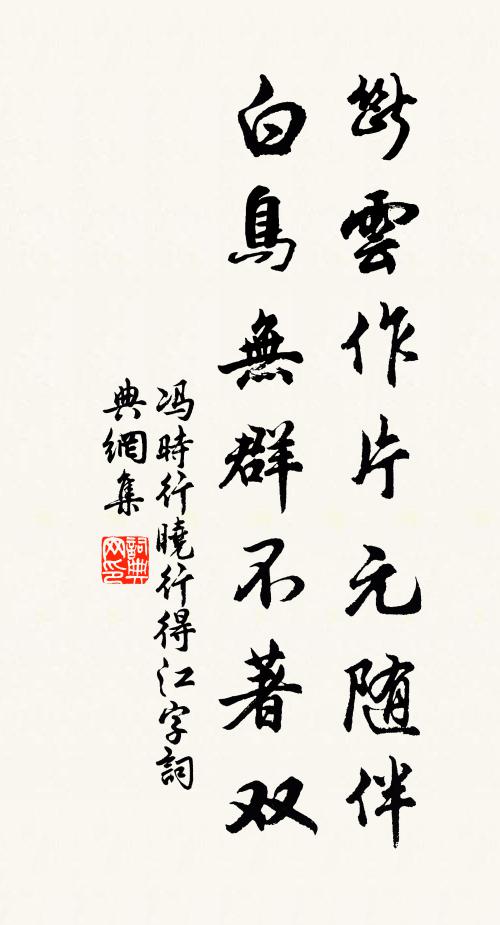 斷雲作片元随伴
白鳥無群不著双
冯時行曉行得江字詞
典網集
詞典
网印